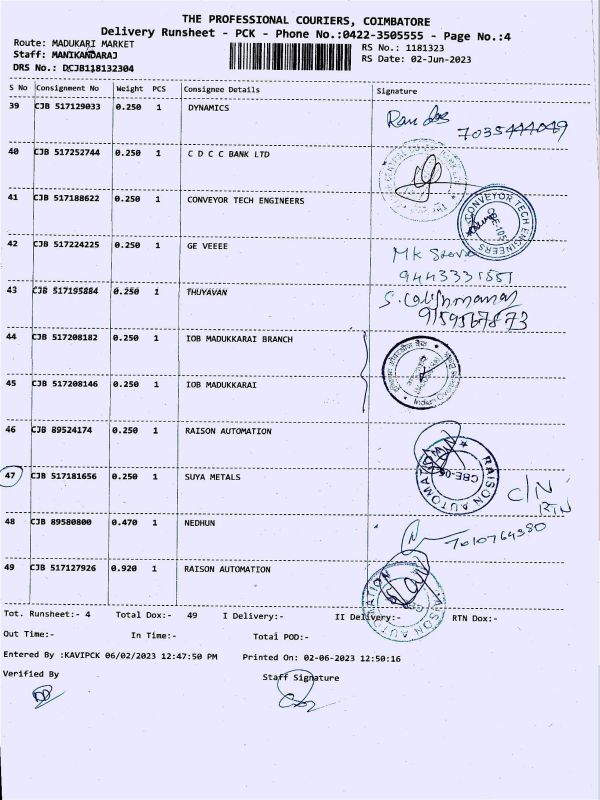 THE PROFESSIONAL COURIERS, COIMBATORE
Delivery Runsheet - PCK - Phone No.:0422-3505555 - Page No.:4
Route: MADUKARI MARKET
RS No.: 1181323
Staff: MANIKANDARAJ
RS Date: 02-Jun-2023
DRS No.: DCJB118132304
S No Consignment No Weight PCS Consignee Details Signature
39 CJB 517129033 0.250 1 DYNAMICS
7035444049
40 CJB 517252744 0.250 1 C D C C BANK LTD
41 CJB 517188622 0.250 1 CONVEYOR TECH ENGINEERS
CONVEYOR TECH ENGINEERS
42 CJB 517224225 0.250 1 GE VEEEE
MK
43 CJB 517195884 0.250 1 THUYAVAN
9159567873
44 CJB 517208182 0.250 1 IOB MADUKKARAI BRANCH
45 CJB 517208146 0.250 1 IOB MADUKKARAI
46 CJB 89524174 0.250 1 RAISON AUTOMATION
RAISON AUTOMATION
47 CJB 517181656 0.250 1 SUYA METALS
C/N
RTN
48 CJB 89580800 0.470 1 NEDHUN
7010764380
49 CJB 517127926 0.920 1 RAISON AUTOMATION
RAISON AUTOMATION
Tot. Runsheet:- 4 Total Dox:- 49 I Delivery:- II Delivery:- RTN Dox:-
Out Time:- In Time:- Total POD:-
Entered By :KAVIPCK 06/02/2023 12:47:50 PM Printed On: 02-06-2023 12:50:16
Verified By Staff Signature